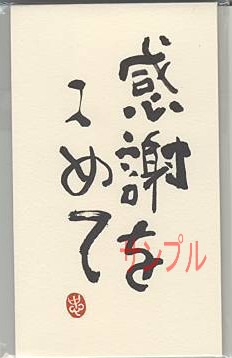 感謝を
こめて
サンプル